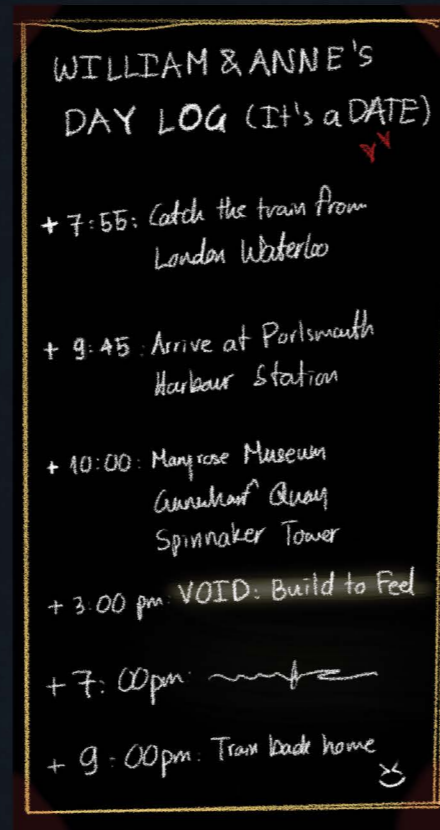 WILLIAM & ANNE'S
DAY LOG (It's a DATE)
+ 7:55: Catch the train from
London Waterloo
+ 9:45: Arrive at Portsmouth
Harbour Station
+ 10:00: Museum
Quay
Spinnaker Tower
+ 3:00 pm: VOID: Build to Feel
+ 7:00pm:
+ 9:00pm: Train back home